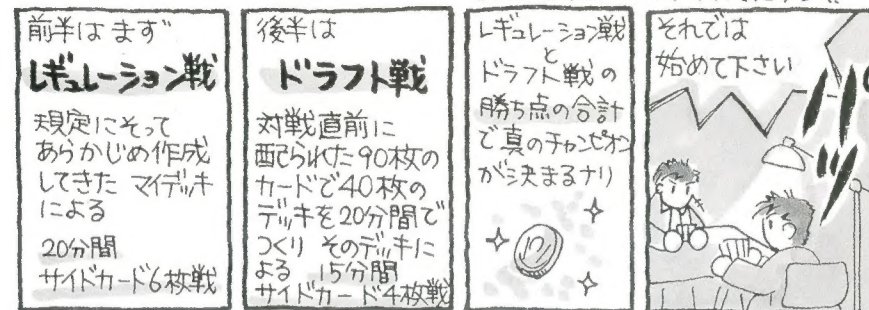 前半は まず
レギュレーション戦
規定にそって
あらかじめ作成
してきた マイデッキ
による
20分間
サイドカード6枚戦
後半は
ドラフト戦
対戦直前に
配られた90枚の
カードで40枚の
デッキを20分間で
つくり そのデッキに
よる 15分間
サイドカード4枚戦
レギュレーション戦
と
ドラフト戦の
勝ち点の合計
で真のチャンピオン
が決まるナリ
それでは
始めて下さい